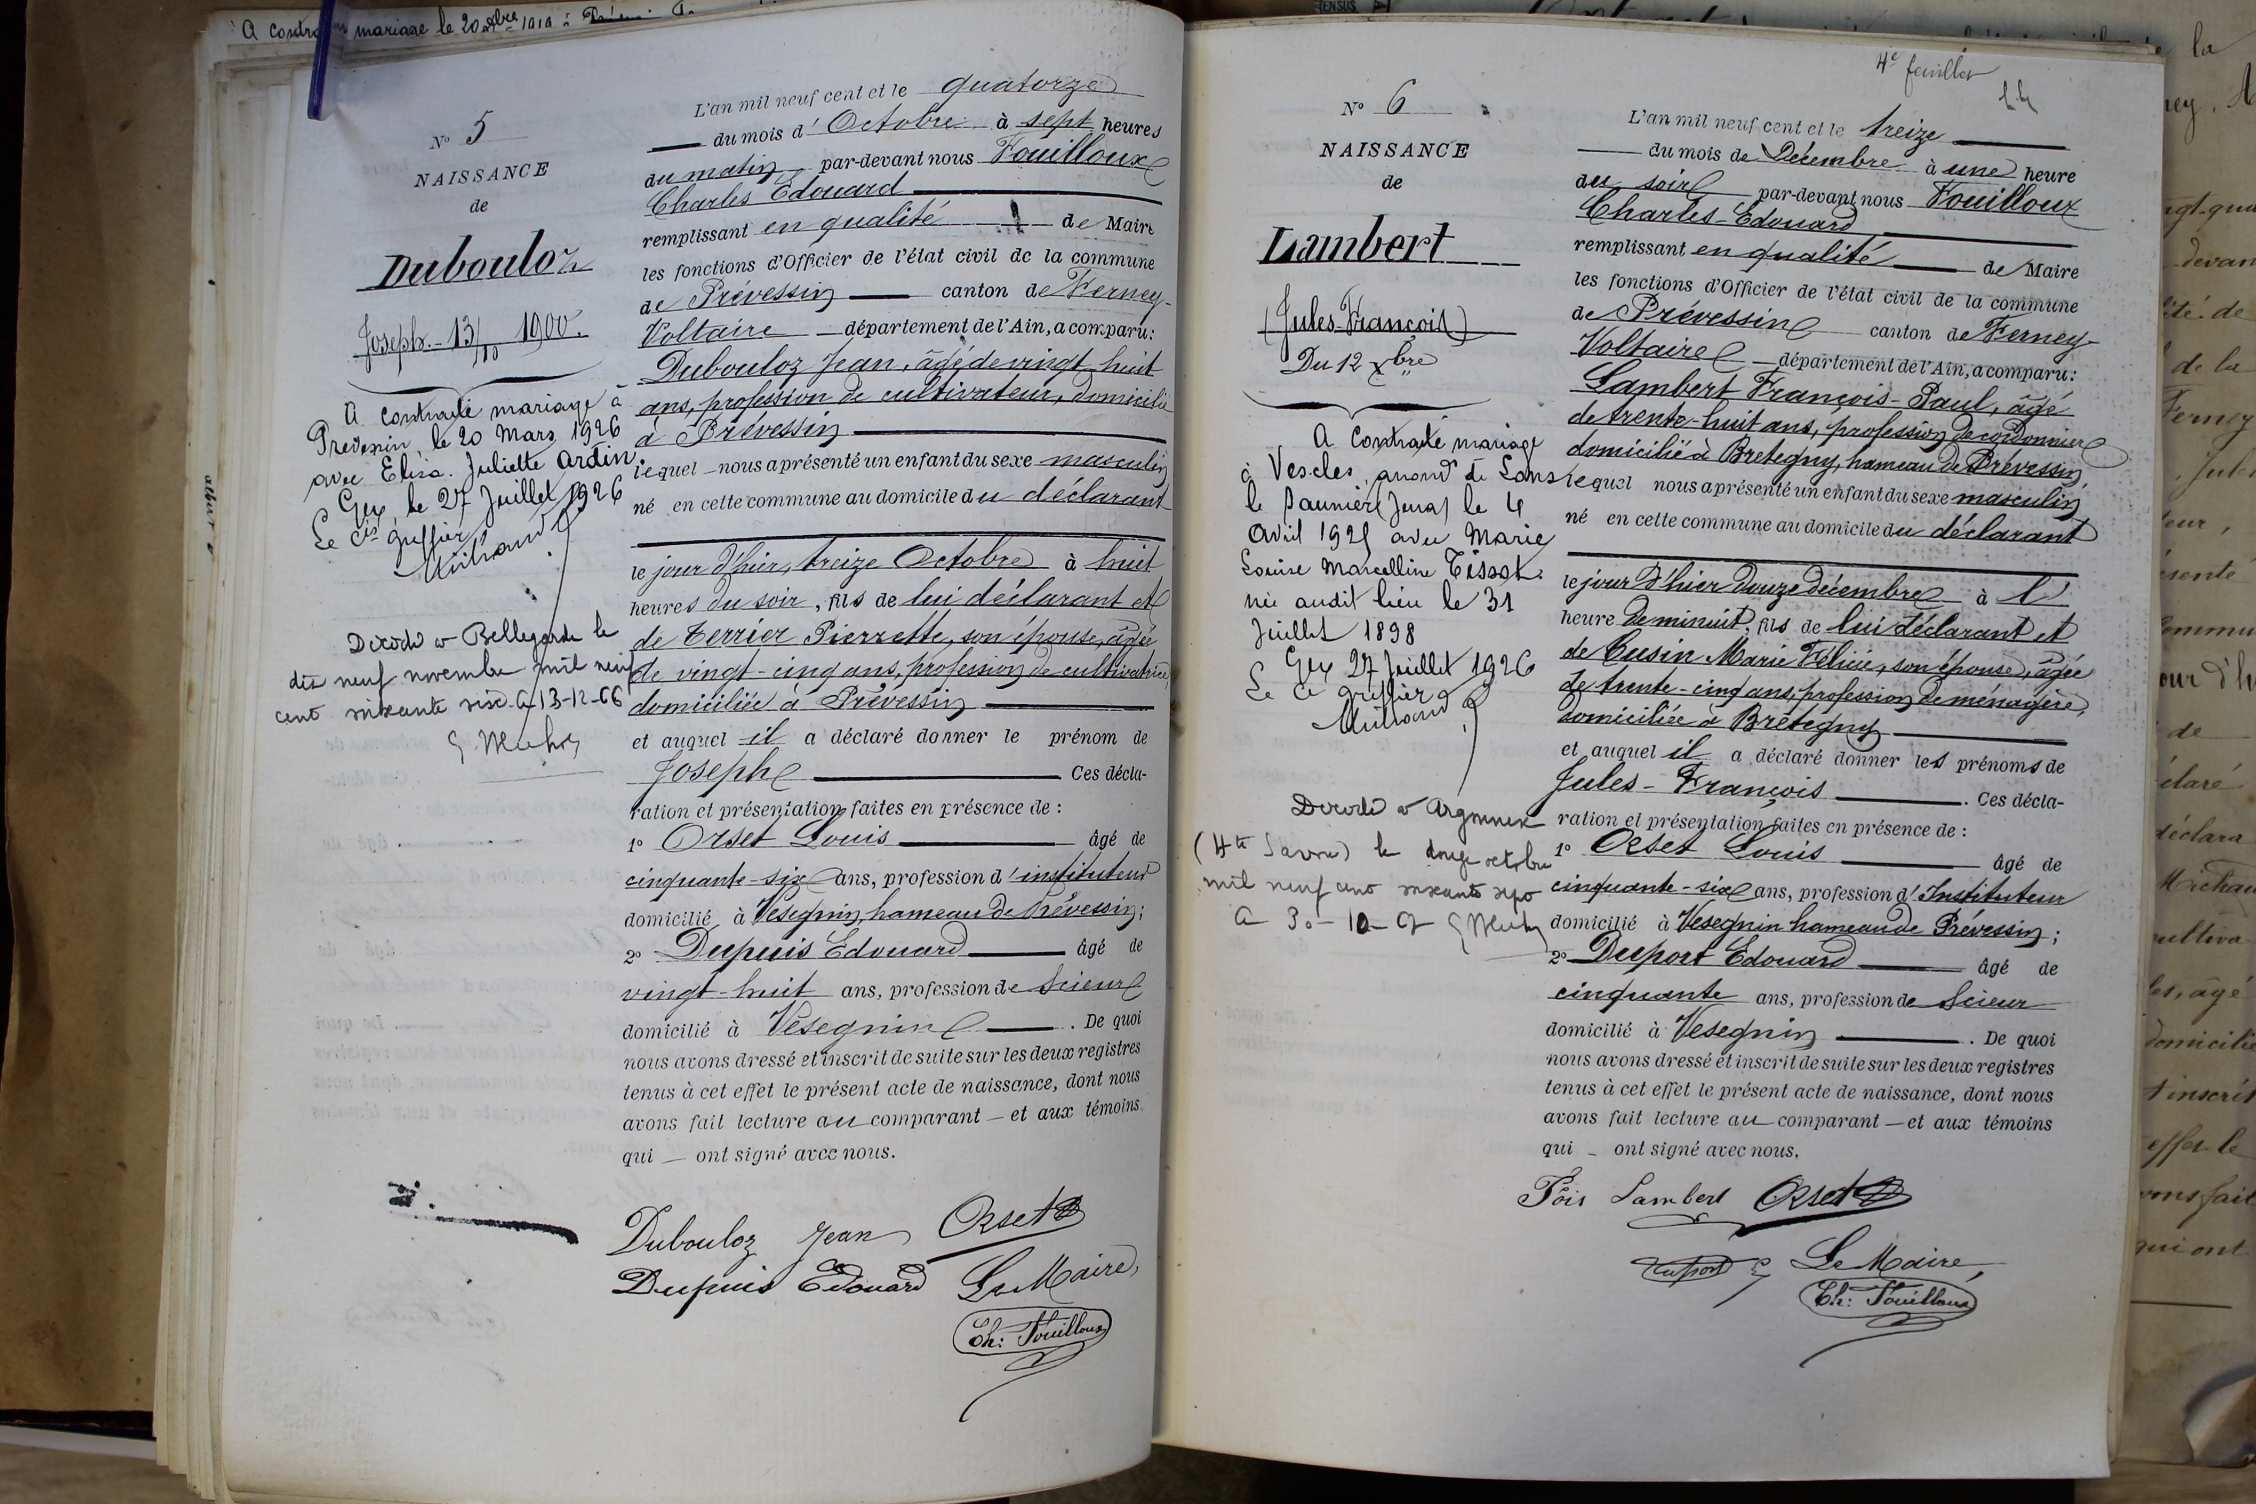 A contracté mariage le 20 Xbre 1919 à
N° 5
NAISSANCE
de
Dubouloz
Joseph. - 13/10 1900.
A contracté mariage à
Prévessin, le 20 Mars 1926
avec Elisa. Juliette Ardin.
Gex le 27 Juillet 1926
Le cis greffier
Décédé à Bellegarde le
dix neuf novembre mil neuf
cent soixante six. a 13-12-66
L'an mil neuf cent et le quatorze
du mois d'Octobre à sept heures
du matin par-devant nous Fouilloux
Charles Edouard
remplissant en qualité de Maire
les fonctions d'Officier de l'état civil de la commune
de Prévessin canton de Ferney-
Voltaire département de l'Ain, a comparu:
Dubouloz Jean, âgé de vingt huit
ans, profession de cultivateur, domicilié
à Prévessin
lequel nous a présenté un enfant du sexe masculin
né en cette commune au domicile du déclarant
le jour d'hier, treize Octobre à huit
heures du soir, fils de lui déclarant et
de Terrier Pierrette, son épouse, âgée
de vingt-cinq ans, profession de cultivatrice,
domiciliée à Prévessin
et auquel il a déclaré donner le prénom de
Joseph Ces décla-
ration et présentation faites en présence de :
1° Orset Louis âgé de
cinquante-six ans, profession d'instituteur
domicilié à Vésegnin, hameau de Prévessin;
2° Dupuis Edouard âgé de
vingt-huit ans, profession de Scieur
domicilié à Vésegnin . De quoi
nous avons dressé et inscrit de suite sur les deux registres
tenus à cet effet le présent acte de naissance, dont nous
avons fait lecture au comparant — et aux témoins
qui — ont signé avec nous.
Dubouloz Jean Orset
Dupuis Edouard Le Maire,
Ch: Fouilloux
4e feuillet
N° 6
NAISSANCE
de
Lambert
(Jules-François)
Du 12 Xbre
A contracté mariage
à Vescles, arrond de Lons
le Saunier (Jura) le 4
Avril 1925 avec Marie
Louise Marcelline Tissot
née audit lieu le 31
Juillet 1898
Gex 27 Juillet 1926
Le cis greffier
Décédé à Argonnex
(Hte Savoie) le douze octobre
mil neuf cent soixante sept
L'an mil neuf cent et le treize
du mois de Décembre à une heure
du soir par-devant nous Fouilloux
Charles-Edouard
remplissant en qualité de Maire
les fonctions d'Officier de l'état civil de la commune
de Prévessin canton de Ferney-
Voltaire département de l'Ain, a comparu:
Lambert François-Paul, âgé
de trente-huit ans, profession de cordonnier
domicilié à Bretegny, hameau de Prévessin,
lequel nous a présenté un enfant du sexe masculin,
né en cette commune au domicile du déclarant
le jour d'hier douze décembre à l'
heure de minuit, fils de lui déclarant et
de Cusin Marie Félicie, son épouse, âgée
de trente-cinq ans, profession de ménagère,
domiciliée à Brétegny
et auquel il a déclaré donner les prénoms de
Jules-François . Ces décla-
ration et présentation faites en présence de :
1° Orset Louis âgé de
cinquante-six ans, profession d'Instituteur
domicilié à Vesegnin hameau de Prévessin;
2° Duport Edouard âgé de
cinquante ans, profession de Scieur
domicilié à Vesegnin . De quoi
nous avons dressé et inscrit de suite sur les deux registres
tenus à cet effet le présent acte de naissance, dont nous
avons fait lecture au comparant — et aux témoins
qui — ont signé avec nous.
Fois Lambert Orset
Duport Le Maire,
Ch: Fouilloux